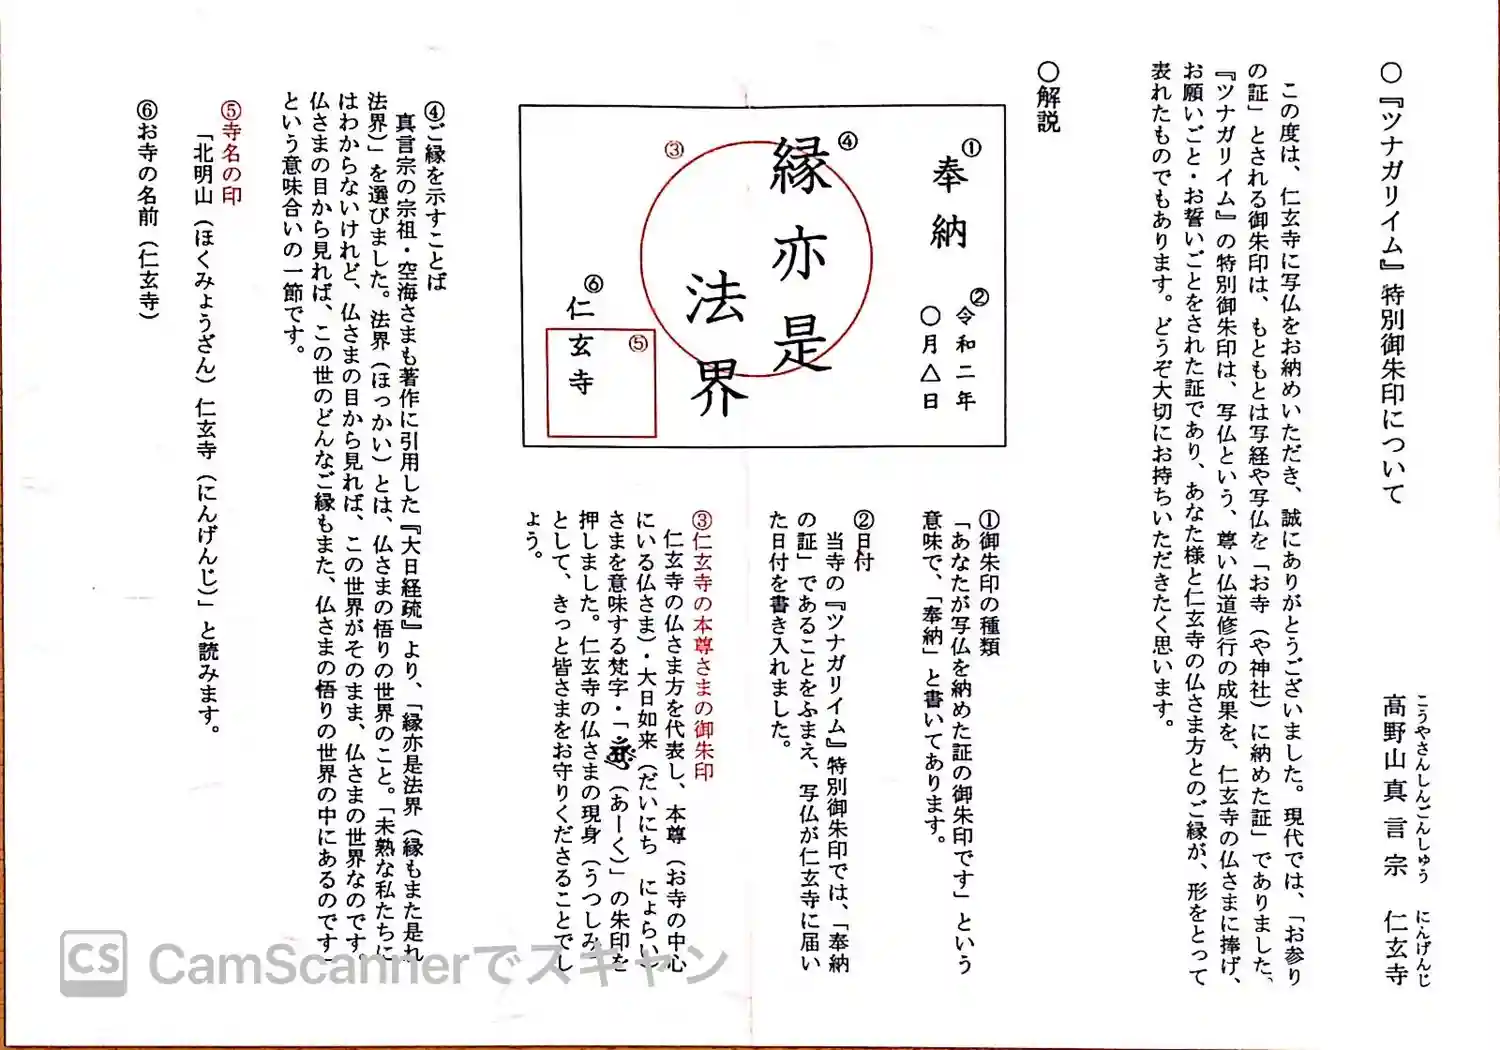 ○『ツナガリイム』特別御朱印について
こうやさんしんごんしゅう　にんげんじ
高野山真言宗　仁玄寺
この度は、仁玄寺に写仏をお納めいただき、誠にありがとうございました。現代では、「お参り
の証」とされる御朱印は、もともとは写経や写仏を「お寺（や神社）に納めた証」でありました。
『ツナガリイム』の特別御朱印は、写仏という、尊い仏道修行の成果を、仁玄寺の仏さまに捧げ、
お願いごと・お誓いごとをされた証であり、あなた様と仁玄寺の仏さま方とのご縁が、形をとって
表れたものでもあります。どうぞ大切にお持ちいただきたく思います。
○解説
①
奉納
②
令和二年
○月△日
④
縁亦是
法界
③
⑥
仁玄寺
⑤
①御朱印の種類
「あなたが写仏を納めた証の御朱印です」という
意味で、「奉納」と書いてあります。
②日付
当寺の『ツナガリイム』特別御朱印では、「奉納
の証」であることをふまえ、写仏が仁玄寺に届い
た日付を書き入れました。
③仁玄寺の本尊さまの御朱印
仁玄寺の仏さま方を代表し、本尊（お寺の中心
にいる仏さま）・大日如来（だいにち　にょらい）
さまを意味する梵字・「（あーく）」の朱印を
押しました。仁玄寺の仏さまの現身（うつしみ）
として、きっと皆さまをお守りくださることでし
ょう。
④ご縁を示すことば
真言宗の宗祖・空海さまも著作に引用した『大日経疏』より、「縁亦是法界（縁もまた是れ
法界）」を選びました。法界（ほっかい）とは、仏さまの悟りの世界のこと。「未熟な私たちに
はわからないけれど、仏さまの目から見れば、この世界がそのまま、仏さまの世界なのです。
仏さまの目から見れば、この世のどんなご縁もまた、仏さまの悟りの世界の中にあるのです」
という意味合いの一節です。
⑤寺名の印
「北明山（ほくみょうざん）仁玄寺（にんげんじ）」と読みます。
⑥お寺の名前（仁玄寺）
CS CamScannerでスキャン